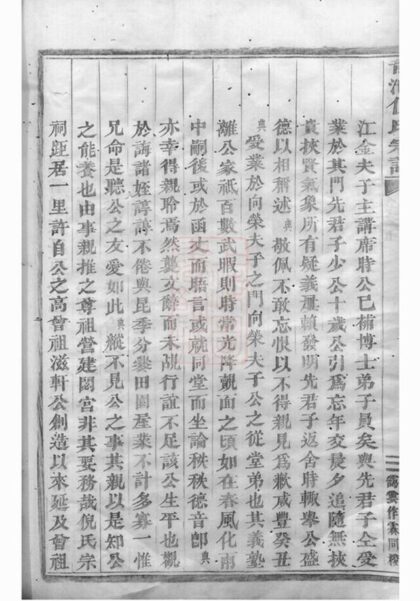 江金夫子主講席時公已補博士弟子員矣與先君子仝受
業於其門先君子少公十歲公引爲忘年交晨夕追隨無挾
貴挾賢氣象所有疑義並賴發明先君子返舍時輒舉公盛
德以相稱述典敬佩不敢忘恨以不得親見爲歉咸豐癸丑
典愛業於向榮夫子之門向榮夫子公之從堂弟也其義塾
離公家祇百數武暇則時常光降覿面之頃如在春風化雨
中嗣後或於函丈而晤言或就同堂而坐論秩秩德音卽典
亦幸得親聆焉然襲文餘而未覘行誼不足該公生平也觀
於誨諸姪諄諄不倦與昆季分爨田園產業不計多寡一惟
兄命是聽公之友愛如此典縱不見公之事其親以是知公
之能養也由事親推之尊祖營建閟宮非其要務哉倪氏宗
祠距居一里許自公之高曾祖滋軒公創造以來延及曾祖